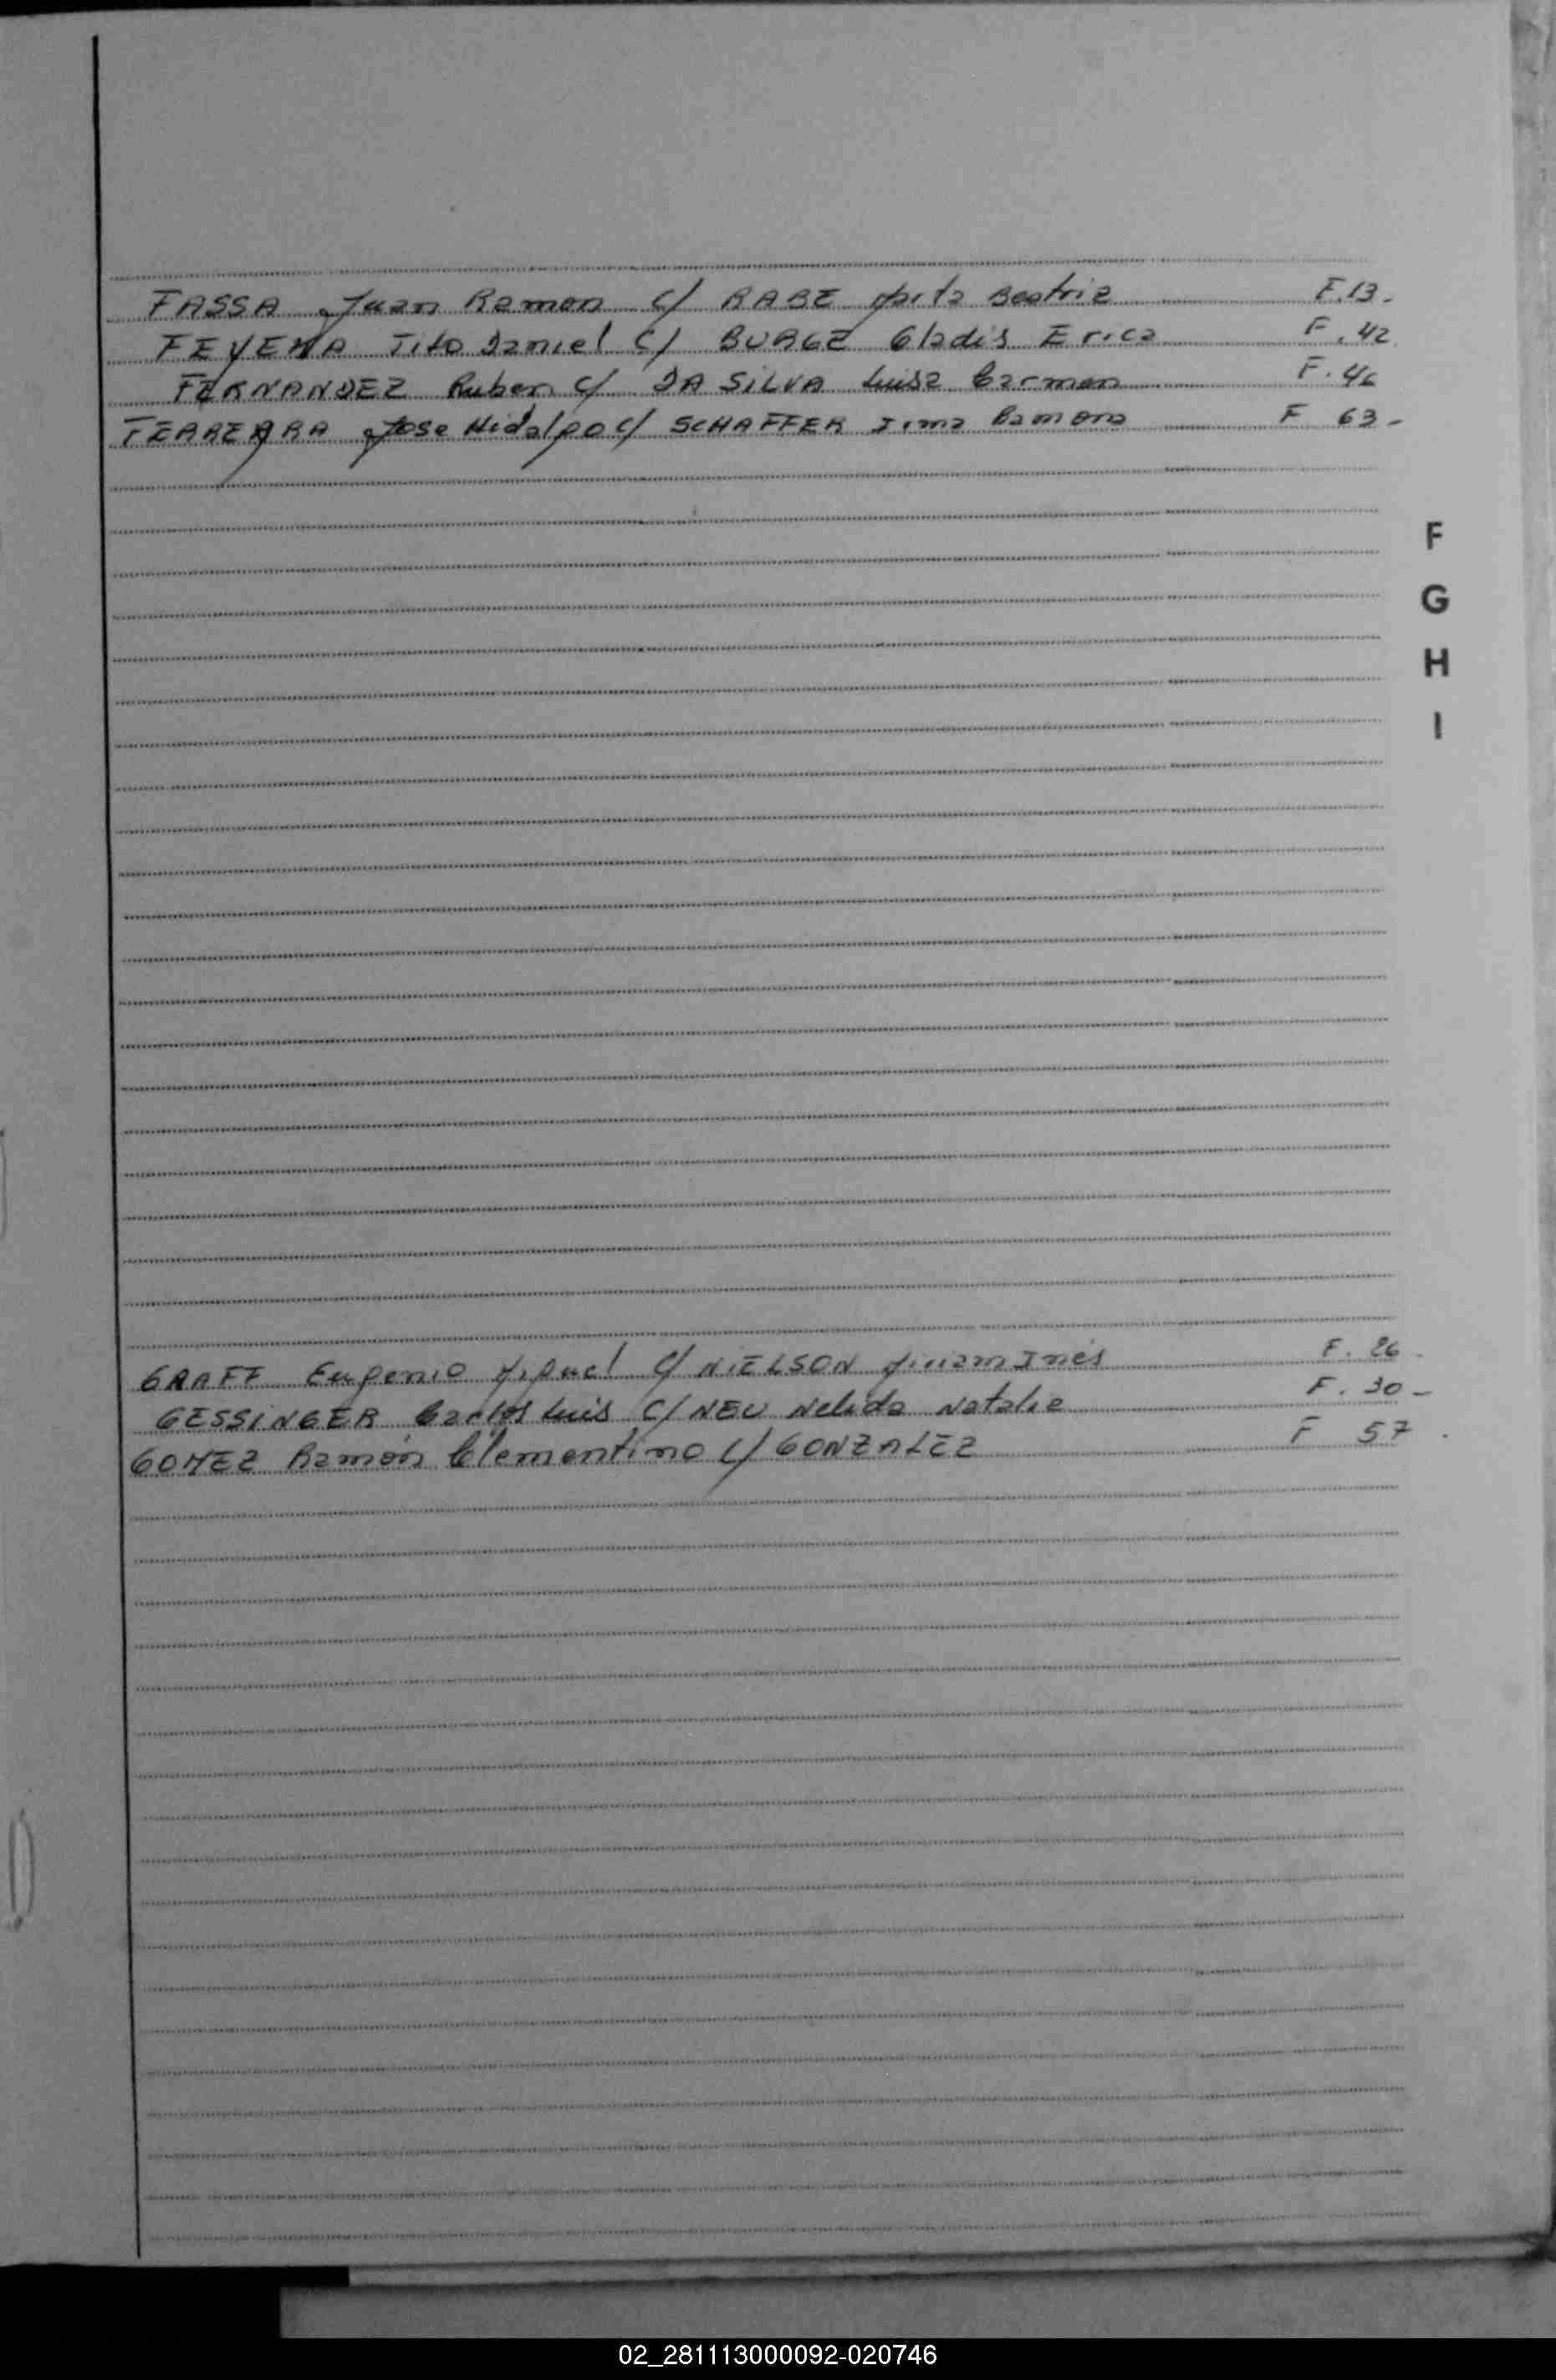 FASSA Juan Ramon c/ RABE Marta Beatriz F.13.
FEYEMA Tito Daniel c/ BURGE Gladis Erica F. 42
FERNANDEZ Ruben c/ DA SILVA Luisa Carmen F. 46
FERREYRA Jose Hidalgo c/ SCHAFFER Irma Ramona F 63-
F
G
H
I
GRAFF Eugenio Miguel c/ NIELSON Miriam Inés F. 26
GESSINGER Carlos Luis c/ NEU Nelida Natalie F. 30-
GOMEZ Ramón Clementino c/ GONZALEZ F 57
02_281113000092-020746